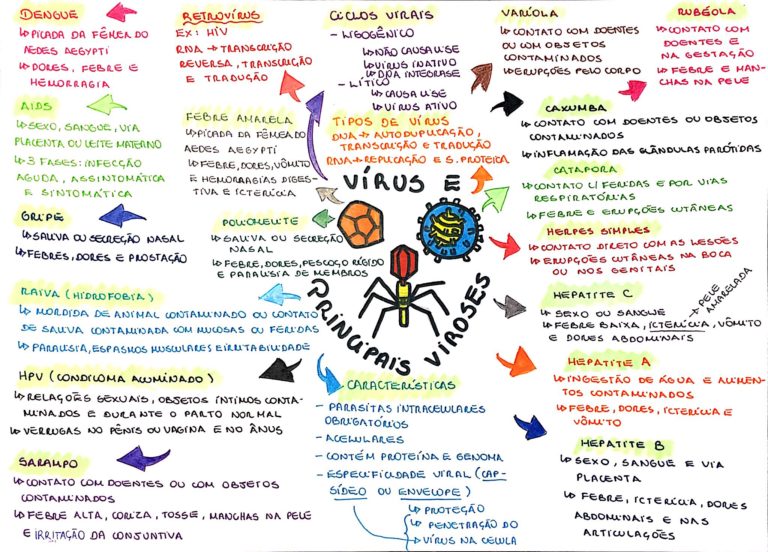 DENGUE
↳ PICADA DA FÊMEA DO
AEDES AEGYPTI
↳ DORES, FEBRE E
HEMORRAGIA
AIDS
↳ SEXO, SANGUE, VIA
PLACENTA OU LEITE MATERNO
↳ 3 FASES: INFECÇÃO
AGUDA, ASSINTOMÁTICA
E SINTOMÁTICA
GRIPE
↳ SALIVA OU SECREÇÃO NASAL
↳ FEBRES, DORES E PROSTAÇÃO
RAIVA (HIDROFOBIA)
↳ MORDIDA DE ANIMAL CONTAMINADO OU CONTATO
DE SALIVA CONTAMINADA COM MUCOSAS OU FERIDAS
↳ PARALISIA, ESPASMOS MUSCULARES E IRRITABILIDADE
HPV (CONDILOMA ACUMINADO)
↳ RELAÇÕES SEXUAIS, OBJETOS ÍNTIMOS CONTA-
MINADOS E DURANTE O PARTO NORMAL
↳ VERRUGAS NO PÊNIS OU VAGINA E NO ÂNUS
SARAMPO
↳ CONTATO COM DOENTES OU COM OBJETOS
CONTAMINADOS
↳ FEBRE ALTA, CORIZA, TOSSE, MANCHAS NA PELE
E IRRITAÇÃO DA CONJUNTIVA
RETROVÍRUS
EX: HIV
RNA → TRANSCRIÇÃO
REVERSA, TRANSCRIÇÃO
E TRADUÇÃO
FEBRE AMARELA
↳ PICADA DA FÊMEA DO
AEDES AEGYPTI
↳ FEBRE, DORES, VÔMITO
E HEMORRAGIAS DIGES-
TIVA E ICTERÍCIA
POLIOMELITE
↳ SALIVA OU SECREÇÃO
NASAL
↳ FEBRE, DORES, PESCOÇO RÍGIDO
E PARALISIA DE MEMBROS
CICLOS VIRAIS
- LISOGÊNICO
↳ NÃO CAUSA LISE
↳ VÍRUS INATIVO
↳ DNA INTEGRASE
- LÍTICO
↳ CAUSA LISE
↳ VÍRUS ATIVO
TIPOS DE VÍRUS
DNA → AUTODUPLICAÇÃO,
TRANSCRIÇÃO E TRADUÇÃO
RNA → REPLICAÇÃO E S. PROTEICA
VÍRUS E
PRINCIPAIS VIROSES
CARACTERÍSTICAS
- PARASITAS INTRACELULARES
OBRIGATÓRIOS
- ACELULARES
- CONTÉM PROTEÍNA E GENOMA
- ESPECIFICIDADE VIRAL (CAP-
SÍDEO OU ENVELOPE)
↳ PROTEÇÃO
↳ PENETRAÇÃO DO
↳ VÍRUS NA CÉLULA
VARÍOLA
↳ CONTATO COM DOENTES
OU COM OBJETOS
CONTAMINADOS
↳ ERUPÇÕES PELO CORPO
RUBÉOLA
↳ CONTATO COM
DOENTES E
NA GESTAÇÃO
↳ FEBRE E MAN-
CHAS NA PELE
CAXUMBA
↳ CONTATO COM DOENTES OU OBJETOS
CONTAMINADOS
↳ INFLAMAÇÃO DAS GLÂNDULAS PARÓTIDAS
CATAPORA
↳ CONTATO C/ FERIDAS E POR VIAS
RESPIRATÓRIAS
↳ FEBRE E ERUPÇÕES CUTÂNEAS
HERPES SIMPLES
↳ CONTATO DIRETO COM AS LESÕES
↳ ERUPÇÕES CUTÂNEAS NA BOCA
OU NOS GENITAIS
HEPATITE C
↳ SEXO OU SANGUE
→ PELE
AMARELADA
↳ FEBRE BAIXA, ICTERÍCIA, VÔMITO
E DORES ABDOMINAIS
HEPATITE A
↳ INGESTÃO DE ÁGUA E ALIMEN-
TOS CONTAMINADOS
↳ FEBRE, DORES, ICTERÍCIA E
VÔMITO
HEPATITE B
↳ SEXO, SANGUE E VIA
PLACENTA
↳ FEBRE, ICTERÍCIA, DORES
ABDOMINAIS E NAS
ARTICULAÇÕES